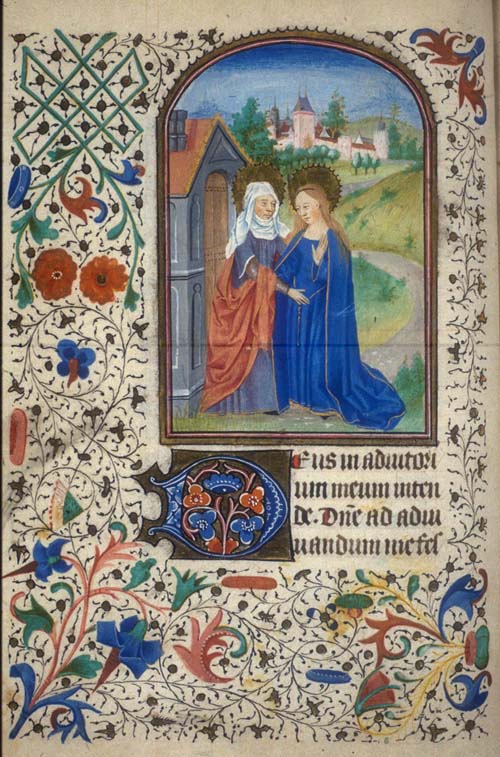 Deus in adiutori
um meum inten
de. Dñe ad adiu
uandum me fes